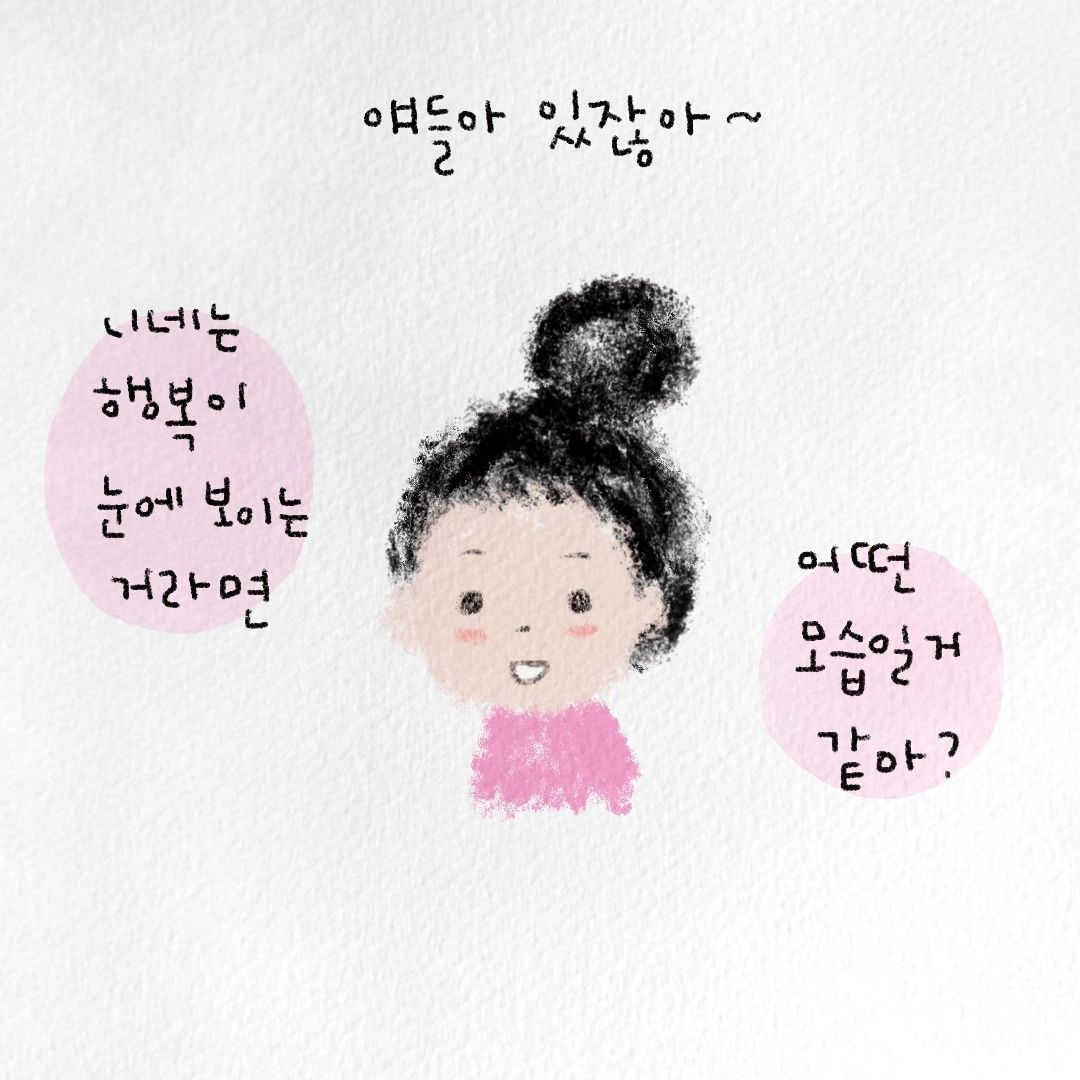 얘들아 있잖아~
니네는
행복이
눈에 보이는
거라면
어떤
모습일거
같아?